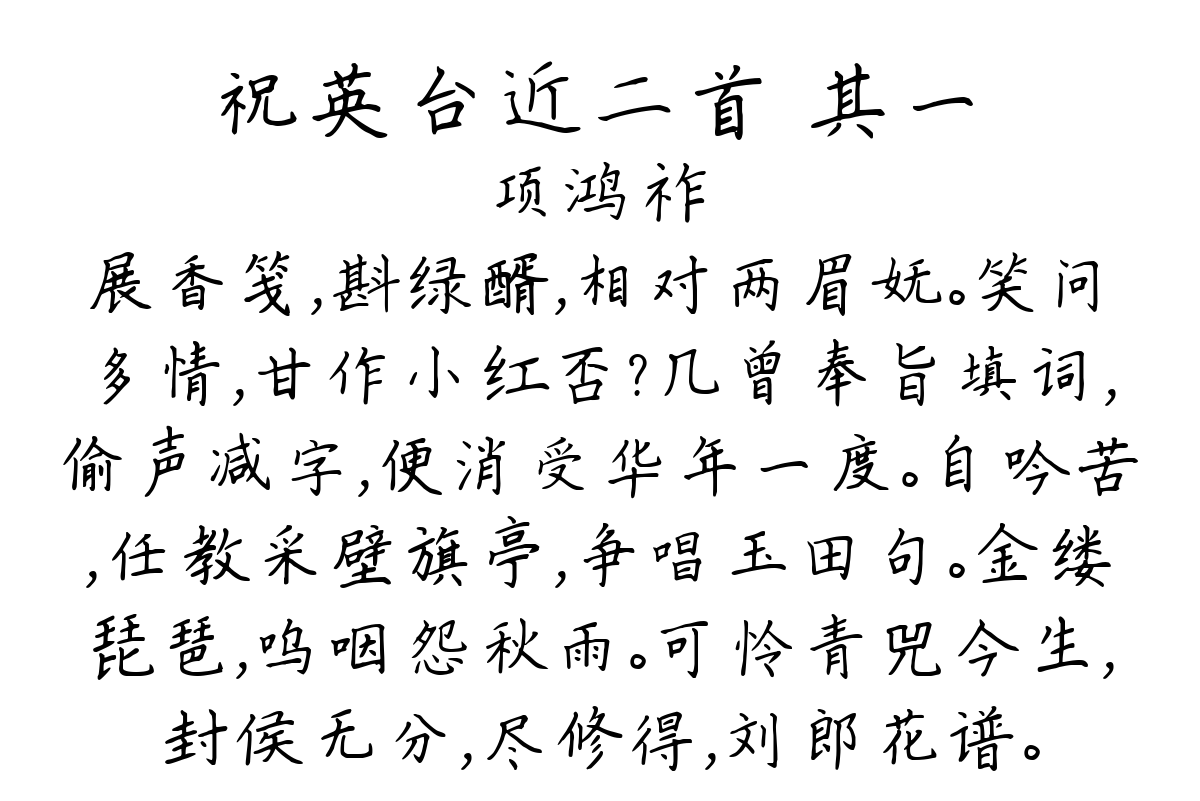 祝英台近二首 其一
项鸿祚
展香笺,斟绿醑,相对两眉妩。笑问
多情,甘作小红否?几曾奉旨填词,
偷声减字,便消受华年一度。自吟苦
,任教采壁旗亭,争唱玉田句。金缕
琵琶,呜咽怨秋雨。可怜青兕今生,
封侯无分,尽修得,刘郎花谱。